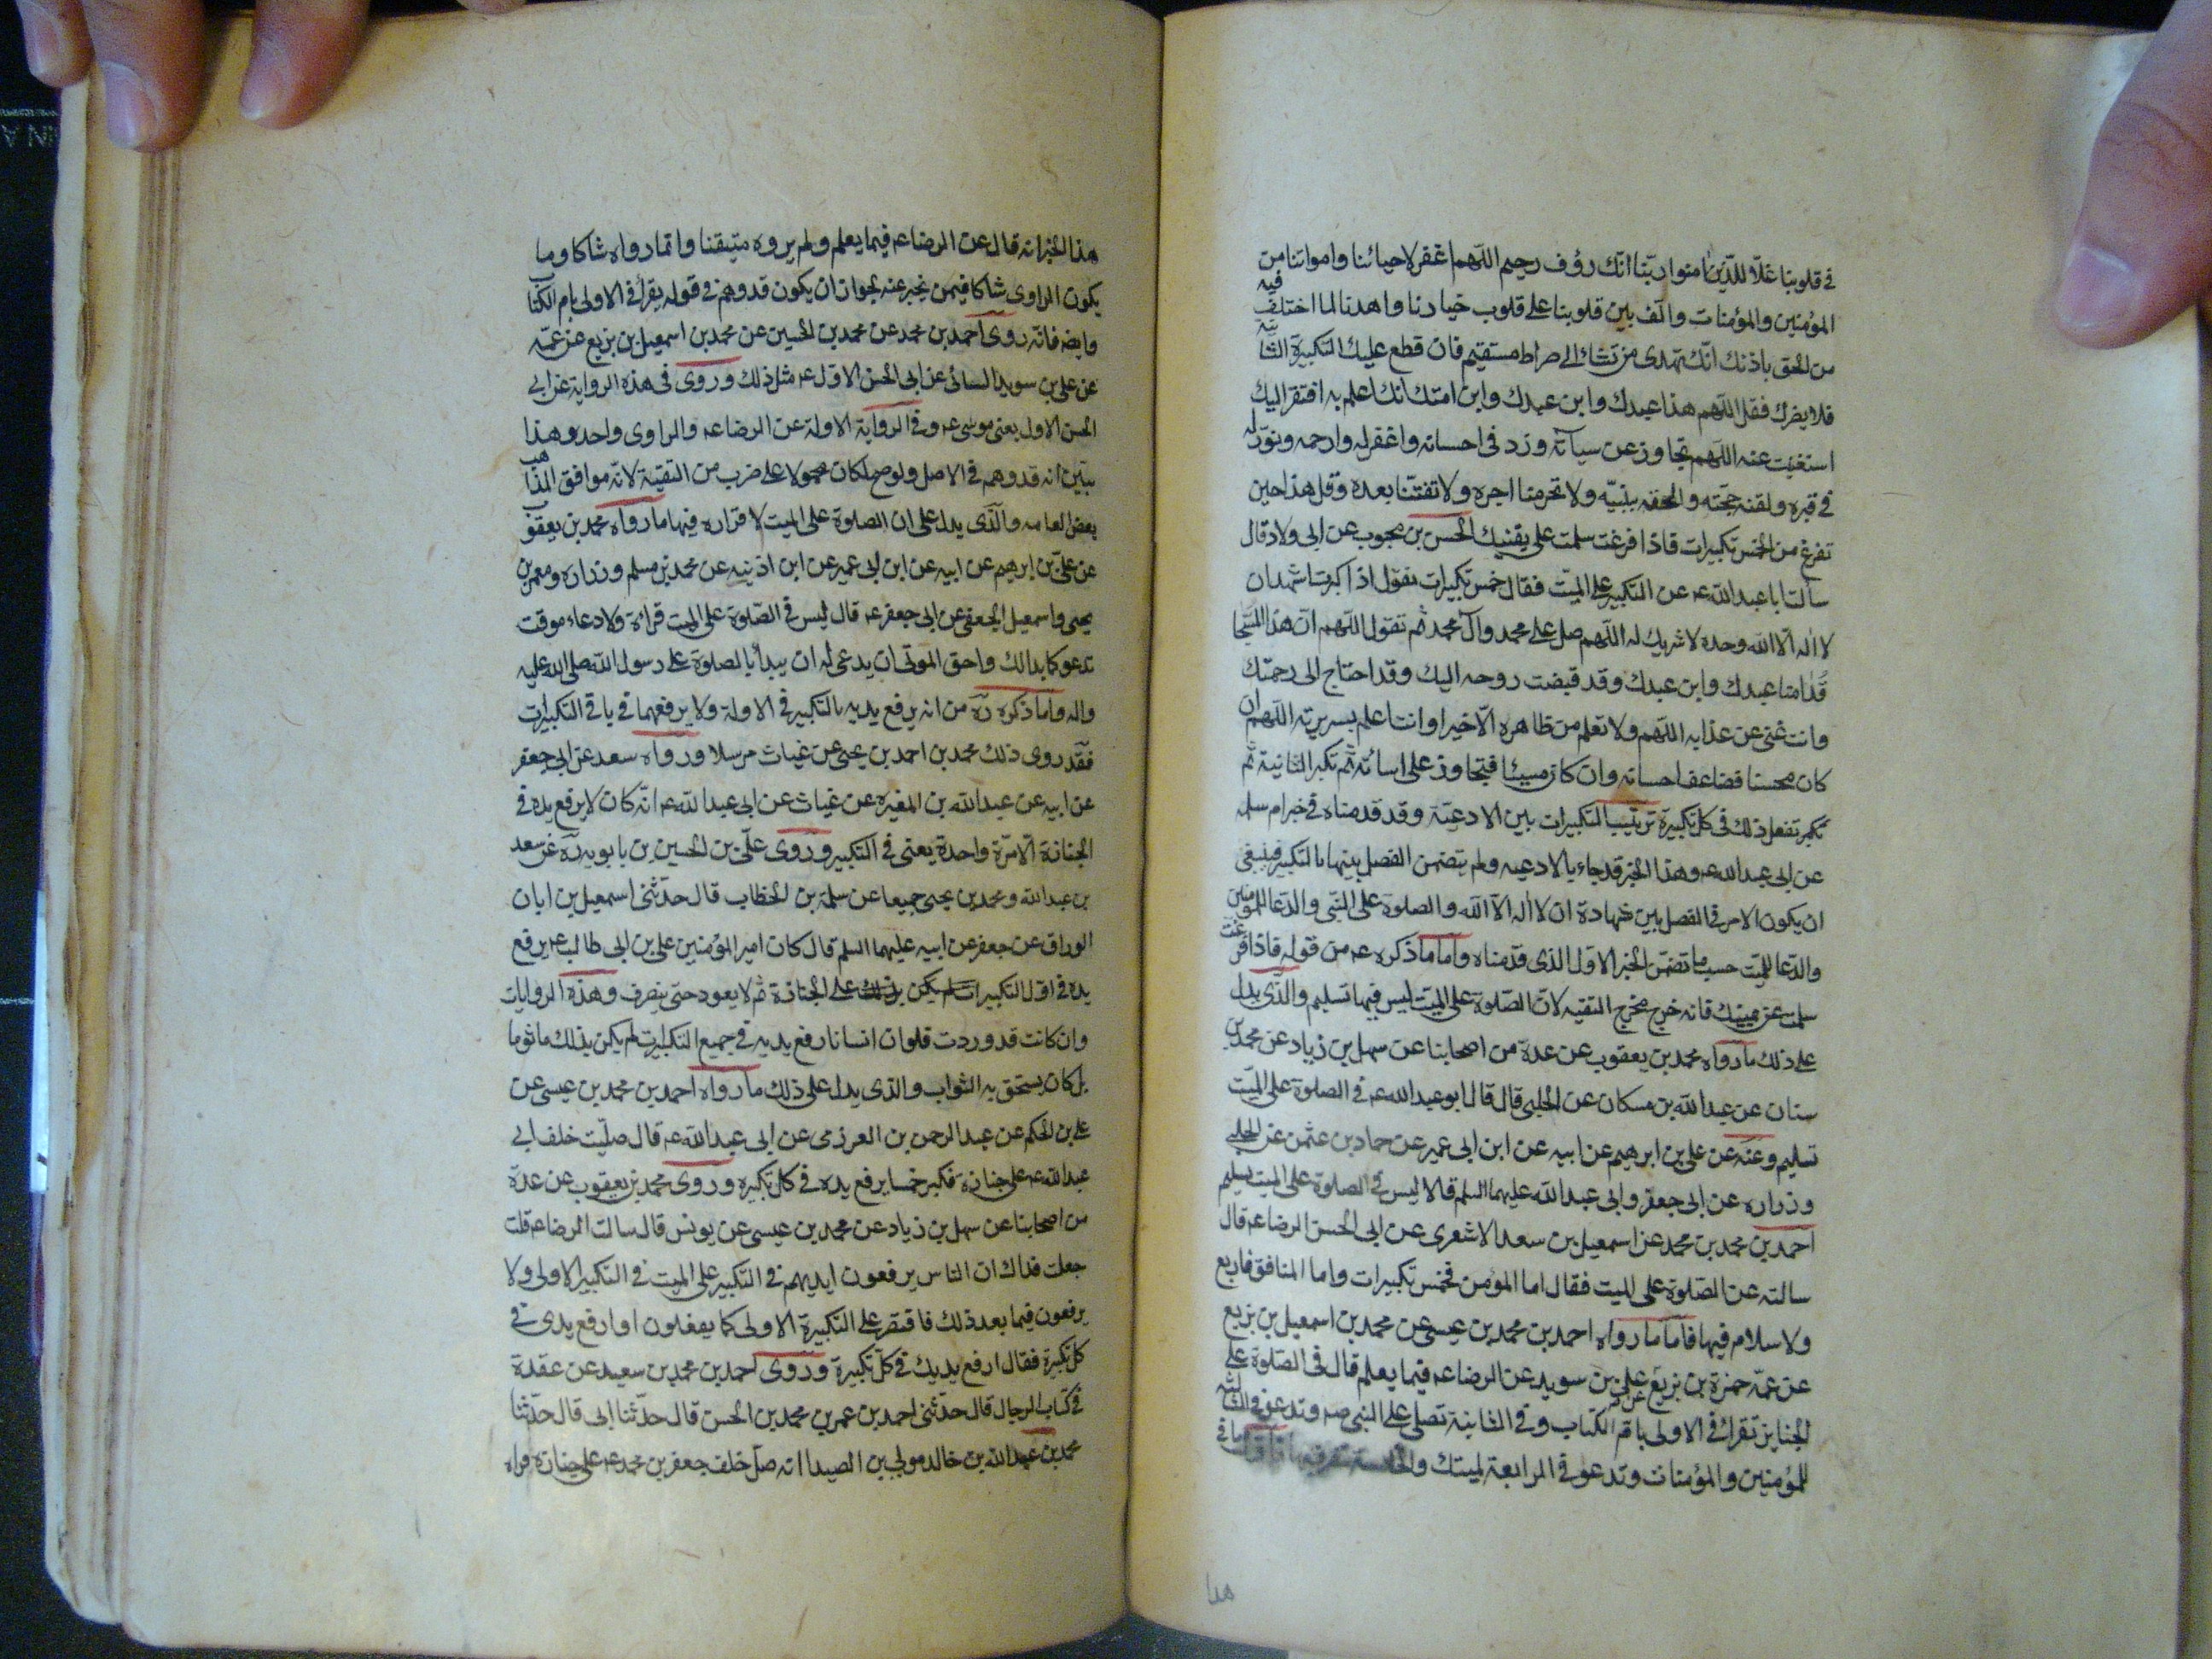 في قلوبنا غلا للذين امنوا ربنا انك رؤف رحيم اللهم اغفر لاحيائنا وامواتنا من
المؤمنين والمؤمنات والف بين قلوبنا على قلوب خيارنا واهدنا لما اختلف فيه
من الحق باذنك انك تهدى من تشاء الى صراط مستقيم فان قطع عليك التكبيرة الثانية
فلا يضرك فقل اللهم هذا عبدك وابن عبدك وابن امتك انك اعلم به افتقر اليك
استغنيت عنه اللهم تجاوز عن سيأته وزد في احسانه واغفر له وارحمه ونور له
في قبره ولقنه حجته والحقه بنبيه ولا تحرمنا اجره ولا تفتنا بعده وقل هذا حين
تفرغ من الخمس تكبيرات فاذا فرغت سلمت على يقنيك الحسن بن محبوب عن ابى ولاد قال
سألت ابا عبد الله عه عن التكبير على الميت فقال خمس تكبيرات تقول اذا كبرت اشهد ان
لا اله الا الله وحده لا شريك له اللهم صل على محمد وآل محمد ثم تقول اللهم ان هذا المسجا
قدامنا عبدك وابن عبدك وقد قبضت روحه اليك وقد احتاج الى رحمتك
وانت غنى عن عذابه اللهم ولا نعلم من ظاهره الا خيرا وانت اعلم بسريرته اللهم ان
كان محسنا فضاعف احسانه وان كان مسيئا فتجاوز على اسائته ثم تكبر الثانية ثم
تكبر تفعل ذلك في كل تكبيرة ترتيب التكبيرات بين الادعية وقد قدمناه في خبر ام سلمه
عن ابى عبد الله عه وهذا الخبر قد جاء بالادعيه ولم يتضمن الفصل بينها بالتكبير فينبغى
ان يكون الامر في الفصل بين شهادة ان لا اله الا الله والصلوة على النبى والدعا للمؤمنين
والدعا للميت حسب ما تضمن الخبر الاول الذى قدمناه واما ما ذكره عه من قوله فاذا فرغت
سلمت عن يمينك فانه خرج مخرج التقيه لان الصلوة على الميت ليس فيها تسليم والذى يدل
على ذلك ما رواه محمد بن يعقوب عن عدة من اصحابنا عن سهل بن زياد عن محمد بن
سنان عن عبد الله بن مسكان عن الحلبى قال قال ابو عبد الله عه في الصلوة على الميت
تسليم وعنه عن على بن ابرهيم عن ابيه عن ابن ابى عمير عن حماد بن عثمن عن الحلبى
وزراره عن ابى جعفر وابى عبد الله عليهما السلم قالا ليس في الصلوة على الميت تسليم
احمد بن محمد بن محمد عن اسمعيل بن سعد الاشعرى عن ابى الحسن الرضا عه قال
سالته عن الصلوة على الميت فقال اما المؤمن فخمس تكبيرات واما المنافق فاربع
ولا سلام فيها فاما ما رواه احمد بن محمد بن عيسى عن محمد بن اسمعيل بن بزيع
عن عمه حمزة بن بزيع عن على بن سويد عن الرضا عه فيما يعلم قال في الصلوة على
الجنايز تقرا في الاولى بام الكتاب وفي الثانية تصلى على النبى صه وتدعو في الثالثه
للمؤمنين والمؤمنات وتدعو في الرابعة لميتك والخامسة
هذا
هذا الخبر انه قال عن الرضا عه فيما يعلم ولم يروه متيقنا وانما رواه شاكا وما
يكون الراوى شاكا فيمن يخبر عنه يجوز ان يكون قد وهم في قوله يقرا في الاولى بام الكتاب
وايضه فانه روى احمد بن محمد عن محمد بن الحسين عن محمد بن اسمعيل بن بزيع عن عمه
عن على بن سويد السائى عن ابى الحسن الاول عه مثل ذلك وروى في هذه الرواية عن ابى
الحسن الاول يعنى موسى عه وفي الرواية الاولة عن الرضا عه والراوى واحد وهذا
يبين انه قد وهم في الاصل ولو صح لكان محمولا على ضرب من التقية لانه موافق المذاهب
بعض العامه والذى يدل على ان الصلوة على الميت لا قراره فيها ما رواه محمد بن يعقوب
عن على بن ابرهيم عن ابيه عن ابن ابى عمير عن ابن اذينيه عن محمد بن مسلم وزراره ومعمر بن
يحيى واسمعيل الجعفى عن ابى جعفر عه قال ليس في الصلوة على الميت قرائة ولا دعاء موقت
تدعو كما بدا لك واحق الموتى ان يدعى له ان يبدأ بالصلوة على رسول الله صلى الله عليه
واله واما ما ذكره ره من انه يرفع يديه بالتكبير في الاولة ولا يرفعهما في باقى التكبيرات
فقد روى ذلك محمد بن احمد بن يحيى عن غياث مرسلا ورواه سعد عن ابى جعفر
عن ابيه عن عبد الله بن المغيره عن غياث عن ابى عبد الله عه انه كان لا يرفع يده في
الجنازة الا مرة واحدة يعنى في التكبير وروى على بن الحسين بن بابويه ره عن سعد
بن عبد الله ومحمد بن يحيى جميعا عن سلمة بن الخطاب قال حدثنى اسمعيل بن ابان
الوراق عن جعفر عن ابيه عليهما السلم قال كان امير المؤمنين على بن ابى طالب عه يرفع
يده في اول التكبيرات على الجنازة ثم لا يعود حتى ينصرف وهذه الروايات
وان كانت قد وردت فلو ان انسانا رفع يديه في جميع التكبيرات لم يكن بذلك ماثوما
بل كان يستحق به الثواب والذى يدل على ذلك ما رواه احمد بن محمد بن عيسى عن
على بن الحكم عن عبد الرحمن بن العرزمى عن ابى عبد الله عه قال صليت خلف ابى
عبد الله عه على جنازة فكبر خمسا يرفع يده في كل تكبيره وروى محمد بن يعقوب عن عدة
من اصحابنا عن سهل بن زياد عن محمد بن عيسى عن يونس قال سالت الرضا عه قلت
جعلت فداك ان الناس يرفعون ايديهم في التكبير على الميت في التكبير الاولى ولا
يرفعون فيما بعد ذلك فاقتصر على التكبيرة الاولى كما يفعلون او ارفع يدى في
كل تكبيرة فقال ارفع يديك في كل تكبيرة وروى احمد بن محمد بن سعيد عن عقدة
في كتاب الرجال قال حدثنى احمد بن عمر بن محمد بن الحسن قال حدثنا ابى قال حدثنا
محمد بن عبد الله بن خالد مولى بن الصيدا انه صلى خلف جعفر بن محمد عه على جنازة فراه